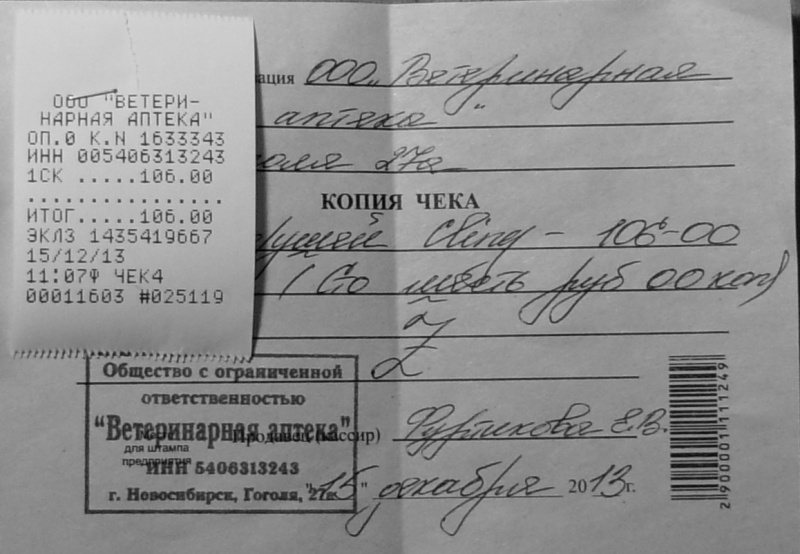 ООО "ВЕТЕРИ-
НАРНАЯ АПТЕКА"
ОП.0 К.N 1633343
ИНН 005406313243
1СК .....106.00
................
ИТОГ.....106.00
ЭКЛЗ 1435419667
15/12/13
11:07Ф ЧЕК4
00011603 #025119
ация ООО „Ветеринарная
аптека"
оголя 27а
КОПИЯ ЧЕКА
Cling - 106-00
(Сто шесть руб 00 коп)
Z
Общество с ограниченной
ответственностью
"Ветеринарная аптека"
Продавец (кассир) Фуртикова Е.В.
для штампа
предприятия
ИНН 5406313243
г. Новосибирск, Гоголя, 27а
"15" декабря 2013г.
2900001111249